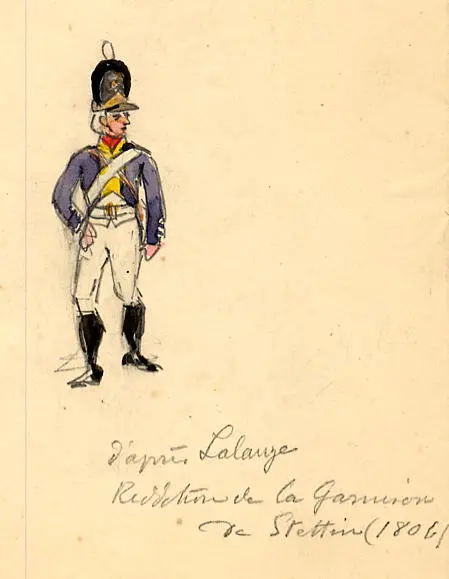 d'après Lalauze
Reddition de la Garnison
de Stettin (1806)